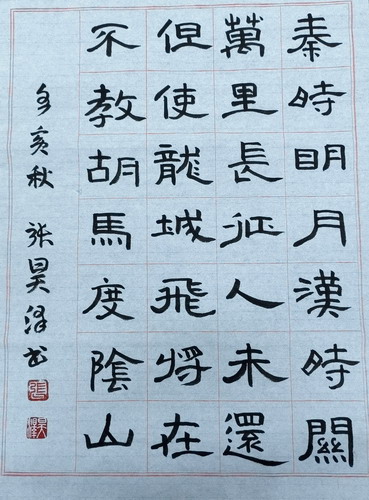 秦時明月漢時關
萬里長征人未還
但使龍城飛將在
不教胡馬度陰山
亥秋 张昊泽书
張